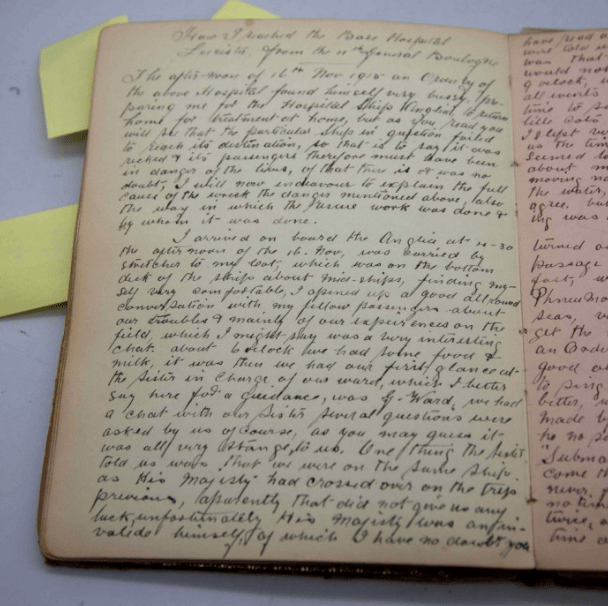 How I reached the Base Hospital
Leicester, from the 11th General Boulogne
The afternoon of 16th Nov 1915 an Orderly of
the above Hospital found himself very bussy, pre-
paring me for the Hospital Ship "Anglia" to return
home for treatment at home, but as you read you
will see that the particular ship in question failed
to reach its destination, so that is to say it was
recked & its passengers therefore must have been
in danger of the lives, of that there is & was no
doubt, I will now endeavour to explain the full
cause of the wreck the danger mentioned above, also
the way in which the rescue work was done &
by whom it was done.
I arrived on board the Anglia at 4-30
the afternoon of the 16. Nov, was carried by
stretcher to my cot, which was on the bottom
deck of the ship about mid-ships, finding my-
self very comfortable, I opened up a good all round
conversation with my fellow passengers about
our troubles & mainly of our experiences on the
field, which I might say was a very interesting
chat, about 6 oclock we had some food &
milk, it was then we had our first glance at
the Sister in Charge of our ward, which I better
say here for a guidance, was G. Ward, we had
a chat with our Sister several questions were
asked by us of course, as you may guess it
was all very strange to us. One thing the Sister
told us was, that we were on the same ship
as His Majesty had crossed over on the trip
previous, apparently that did not give us any
luck, unfortunately His Majesty was an in-
valide himself, of which I have no doubt you
have read
were told
was that
would not
9 oclock,
all events
time to
little
I left
us the
seemed to
about
moving
the water,
agree. but
ing was
turned
passage
fast,
seas,
get the
an
good
to sing
better,
made
he no
"Submar
come
never
no time
twice,
time